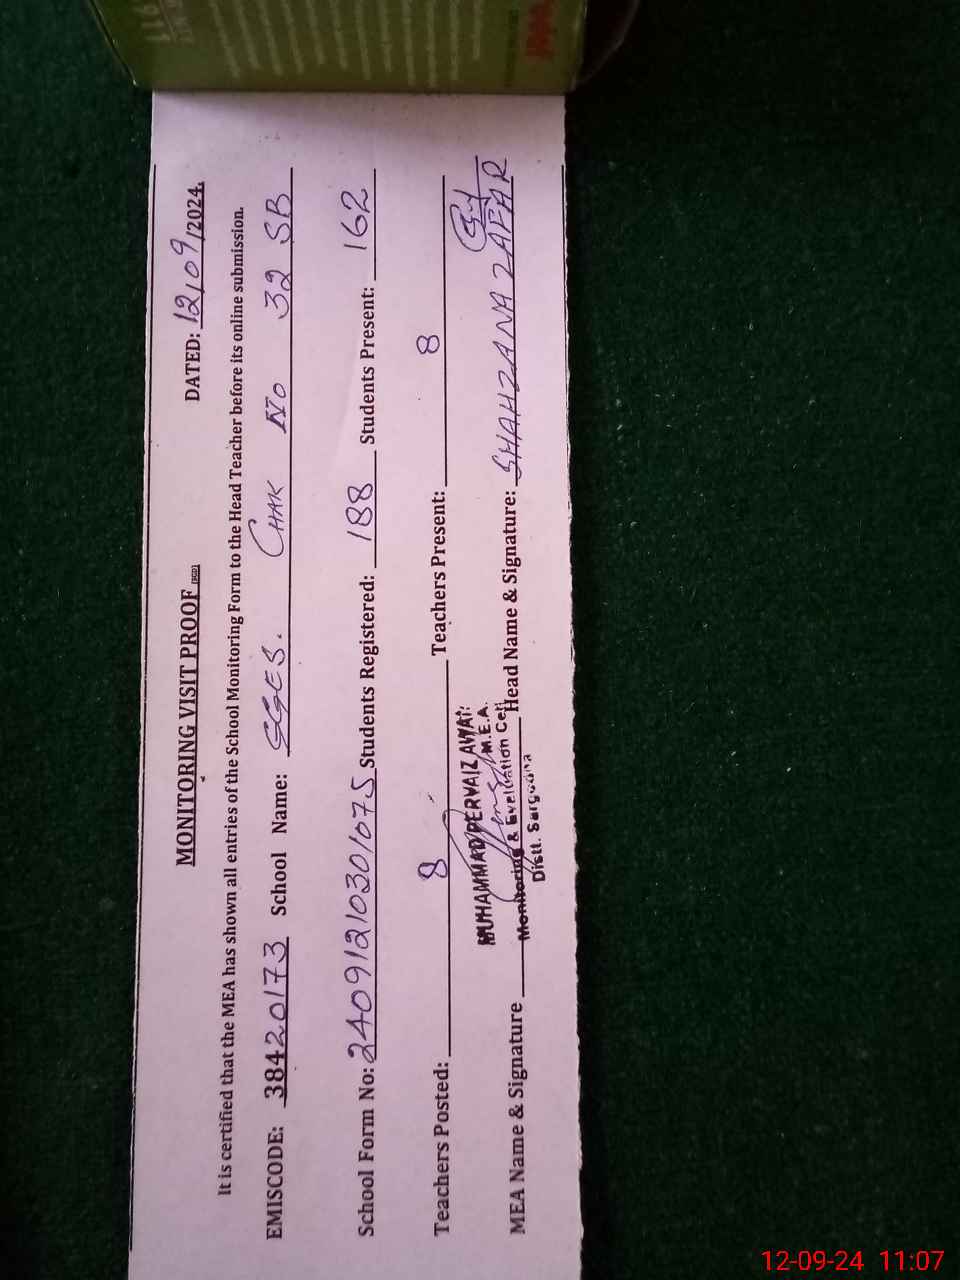 MONITORING VISIT PROOF
DATED: 12/09/2024.
It is certified that the MEA has shown all entries of the School Monitoring Form to the Head Teacher before its online submission.
EMISCODE: 38420173 School Name: GGES. CHAK No 32 SB
School Form No: 24091210301075 Students Registered: 188 Students Present: 162
Teachers Posted: 8 Teachers Present: 8
MUHAMMAD PERVAIZ AWAN
M.E.A.
Monitoring & Evaluation Cell
Distt. Sargodha
MEA Name & Signature Head Name & Signature: SHAHZANA ZAFAR
12-09-24 11:07